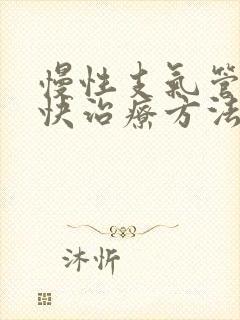 慢性支氣管
快治療方法
沐忻